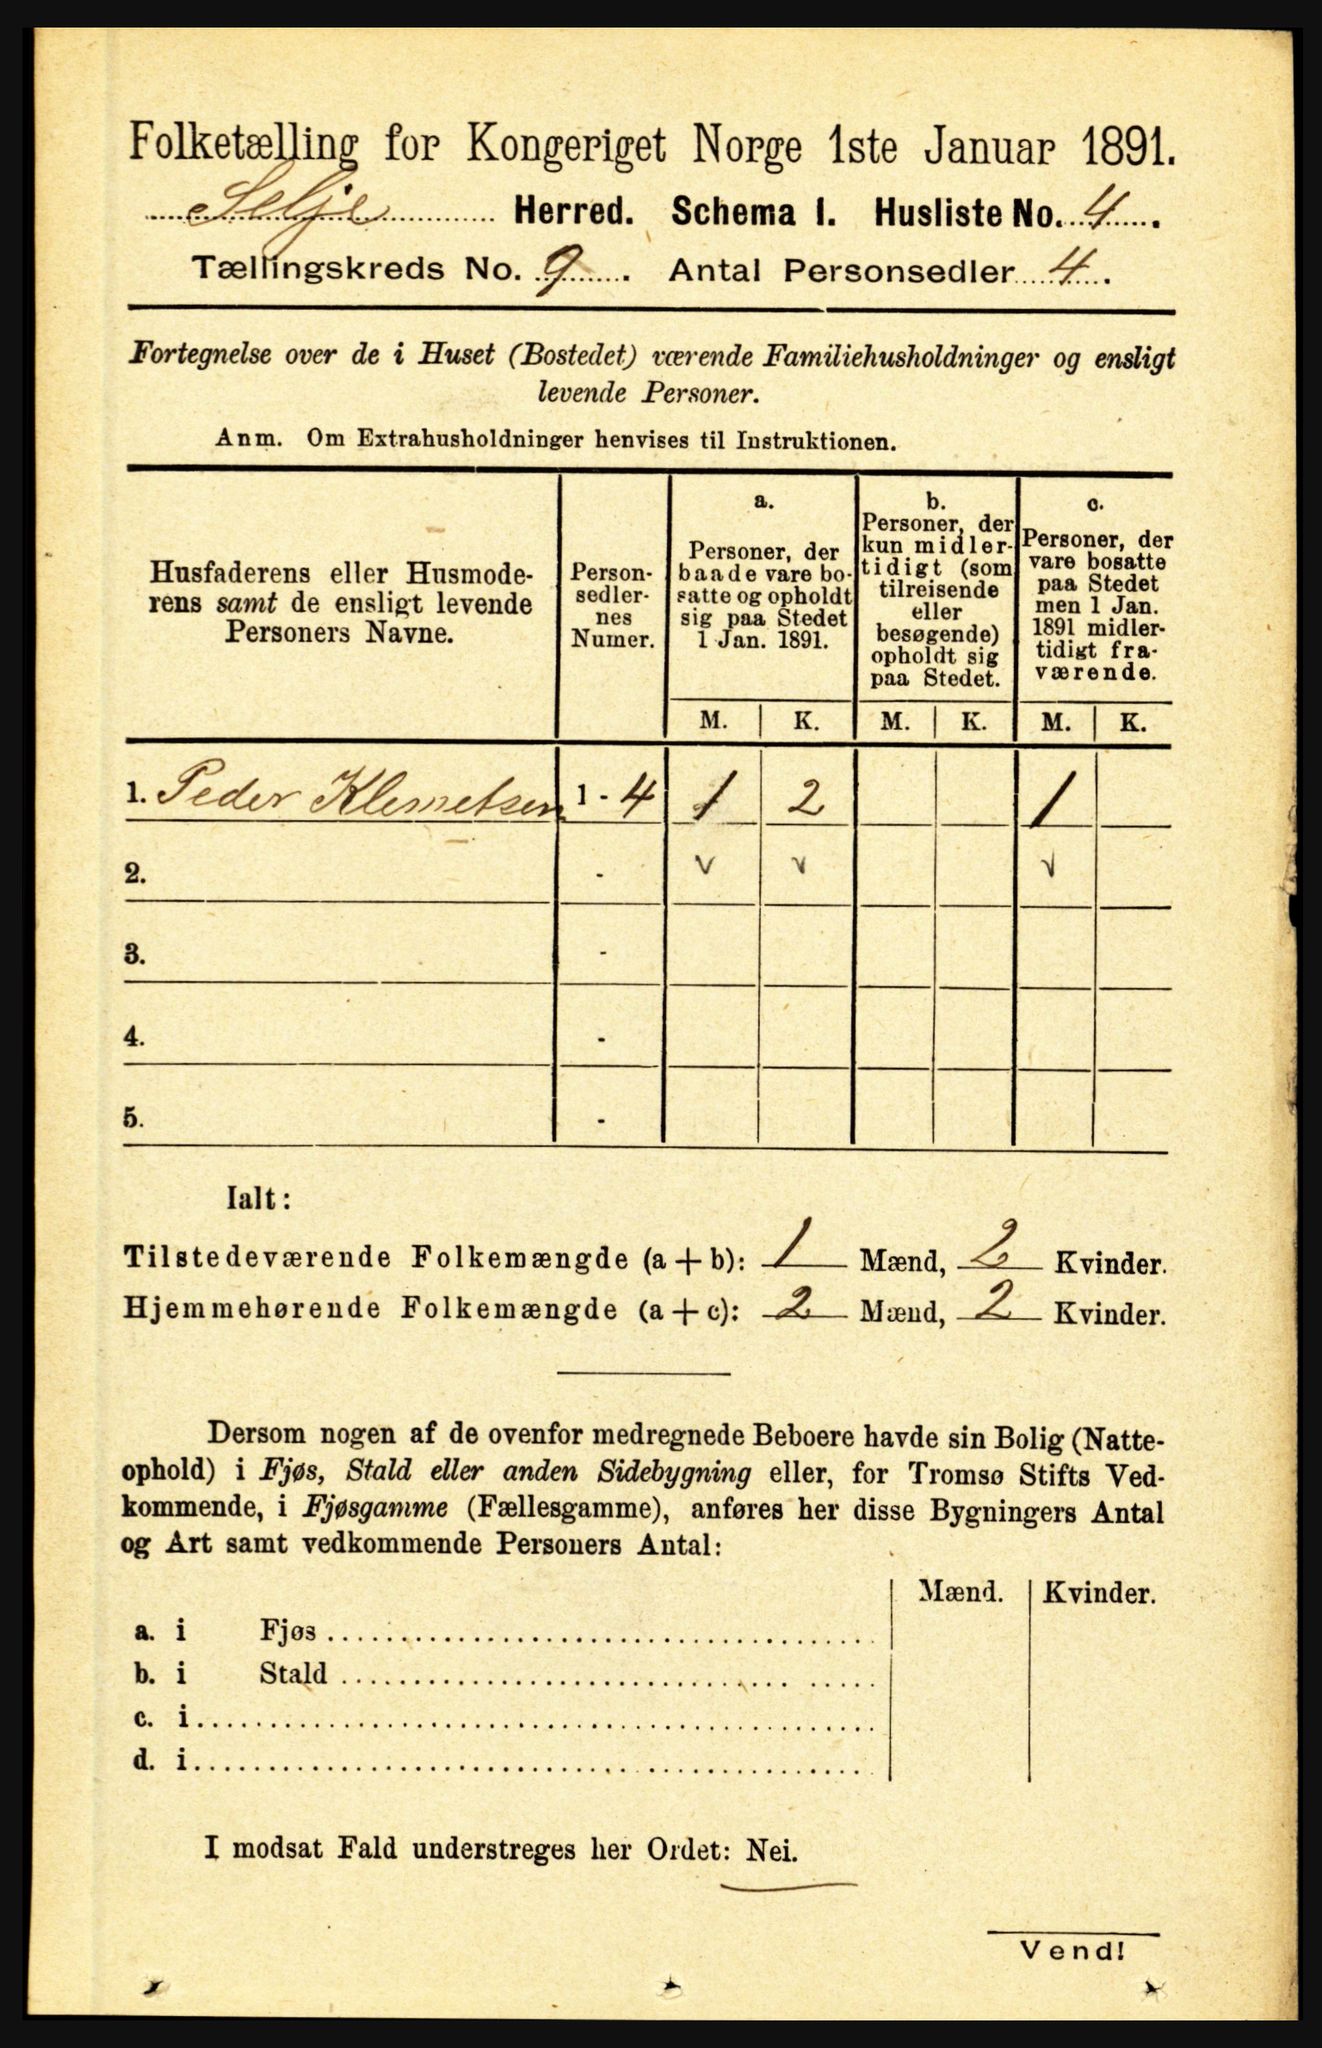 Folketælling for Kongeriget Norge 1ste Januar 1891.
Selje Herred. Schema I. Husliste No. 4.
Tællingskreds No. 9. Antal Personsedler 4.
Fortegnelse over de i Huset (Bostedet) værende Familiehusholdninger og ensligt
levende Personer.
Anm. Om Extrahusholdninger henvises til Instruktionen.
Husfaderens eller Husmode-
rens samt de ensligt levende
Personers Navne.
Person-
sedler-
nes
Numer.
a.
Personer, der
baade vare bo-
satte og opholdt
sig paa Stedet
1 Jan. 1891.
b.
Personer, der
kun midler-
tidigt (som
tilreisende
eller
besøgende)
opholdt sig
paa Stedet.
c.
Personer, der
vare bosatte
paa Stedet
men 1 Jan.
1891 midler-
tidigt fra-
værende.
M. K. M. K. M. K.
1. Peder Klemetsen 1 - 4 1 2 1
2. - v v v
3. -
4. -
5. -
Ialt:
Tilstedeværende Folkemængde (a + b): 1 Mænd, 2 Kvinder.
Hjemmehørende Folkemængde (a + c): 2 Mænd, 2 Kvinder.
Dersom nogen af de ovenfor medregnede Beboere havde sin Bolig (Natte-
ophold) i Fjøs, Stald eller anden Sidebygning eller, for Tromsø Stifts Ved-
kommende, i Fjøsgamme (Fællesgamme), anføres her disse Bygningers Antal
og Art samt vedkommende Personers Antal:
Mænd. Kvinder.
a. i Fjøs
b. i Stald
c. i
d. i
I modsat Fald understreges her Ordet: Nei.
Vend!